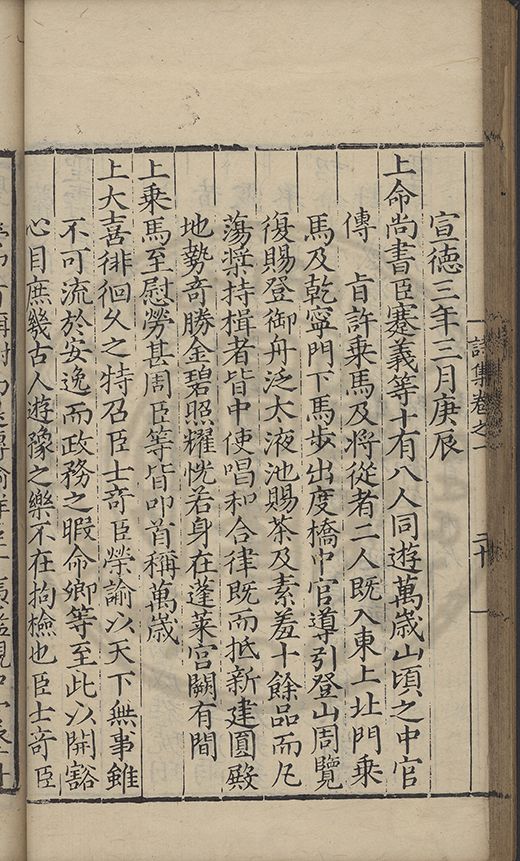 詩集卷之一
二十
宣德三年三月庚辰
上命尚書臣蹇義等十有八人同遊萬歲山頃之中官
傳 旨許乘馬及將從者二人既入東上北門乘
馬及乾寧門下馬步出度橋中官導引登山周覽
復賜登御舟泛太液池賜茶及素羞十餘品而凡
蕩槳持楫者皆中使唱和合律既而抵新建圓殿
地勢奇勝金碧照耀恍若身在蓬萊宮闕有間
上乘馬至慰勞甚周臣等皆叩首稱萬歲
上大喜徘徊久之特召臣士奇臣榮諭以天下無事雖
不可流於安逸而政務之暇命卿等至此以開豁
心目庶幾古人遊豫之樂不在拘檢也臣士奇臣